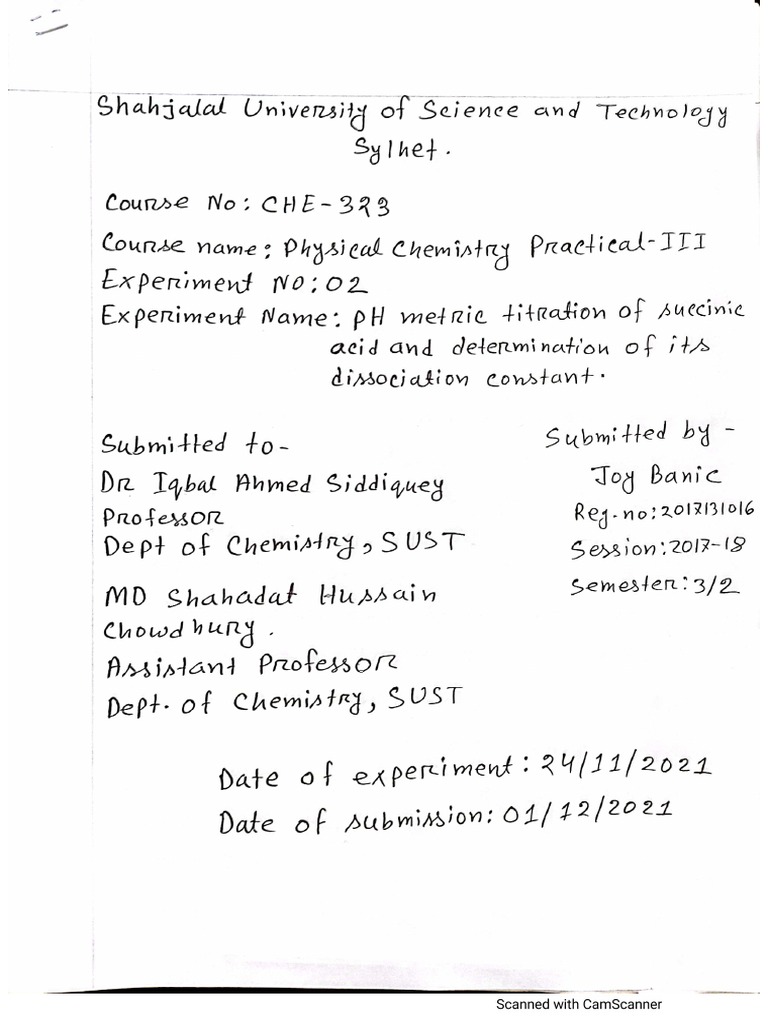 Shahjalal University of Science and Technology
Sylhet.
Course No: CHE-323
Course name: Physical Chemistry Practical-III
Experiment No: 02
Experiment Name: pH metric titration of succinic
acid and determination of its
dissociation constant.
Submitted to-
Dr Iqbal Ahmed Siddiquey
Professor
Dept of Chemistry, SUST
MD Shahadat Hussain
Chowdhury.
Assistant Professor
Dept. of Chemistry, SUST
Submitted by -
Joy Banic
Reg. no: 2017131016
Session: 2017-18
Semester: 3/2
Date of experiment: 24/11/2021
Date of submission: 01/12/2021
Scanned with CamScanner